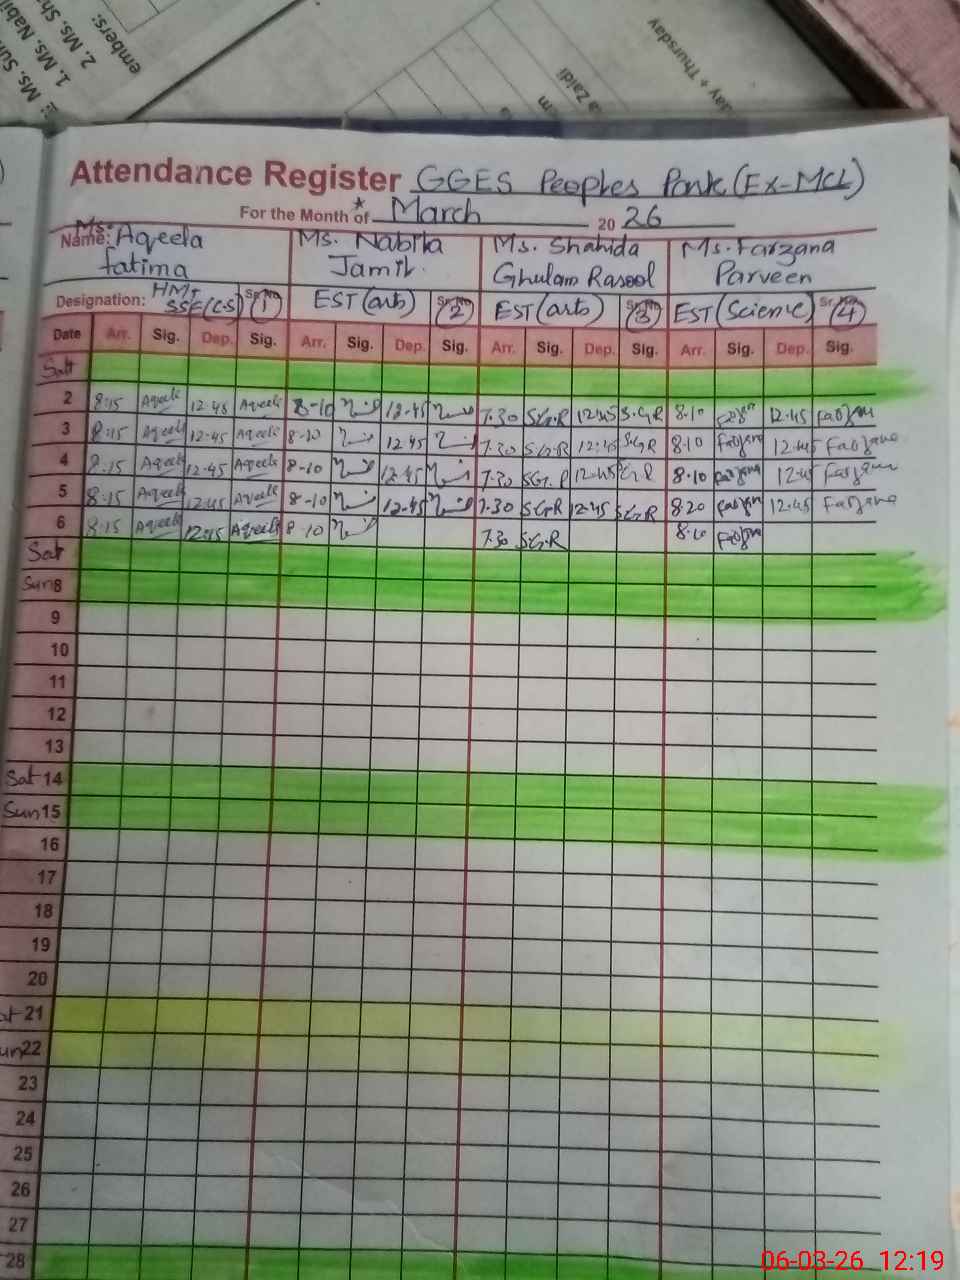 embers:
1. Ms. Nabil
2. Ms. Sh
Ms. Sur
day + Thursday
a Zaidi
Attendance Register GGES Peoples Park (Ex-MCL)
For the Month of March 2026
Name: Ms. Aqeela fatima Ms. Nabila Jamil. Ms. Shahida Ghulam Rasool Ms. Farzana Parveen
Designation: HM, SSE(C.S) Sr. No 1 EST (arts) Sr. No 2 EST (arts) Sr. No 3 EST (Science) Sr. No 4
Date Arr. Sig. Dep. Sig. Arr. Sig. Dep. Sig. Arr. Sig. Dep. Sig. Arr. Sig. Dep. Sig.
2 8:15 Aqeela 12.45 Aqeela 8-10 12.45 7.30 S.G.R 12.45 S.G.R 8.10 Farzana 12.45 Farzana
3 8:15 Aqeela 12.45 Aqeela 8-10 12.45 7.30 S.G.R 12.45 S.G.R 8.10 Farzana 12.45 Farzana
4 8.15 Aqeela 12.45 Aqeela 8-10 12.45 7.30 S.G.R 12.45 S.G.R 8.10 Farzana 12.45 Farzana
5 8:15 Aqeela 12.45 Aqeela 8-10 12.45 7.30 S.G.R 12.45 S.G.R 8.20 Farzana 12.45 Farzana
6 8:15 Aqeela 12.45 Aqeela 8-10 7.30 S.G.R 8.10 Farzana
Sat
Sun 8
9
10
11
12
13
Sat 14
Sun 15
16
17
18
19
20
at 21
un 22
23
24
25
26
27
28
06-03-26 12:19